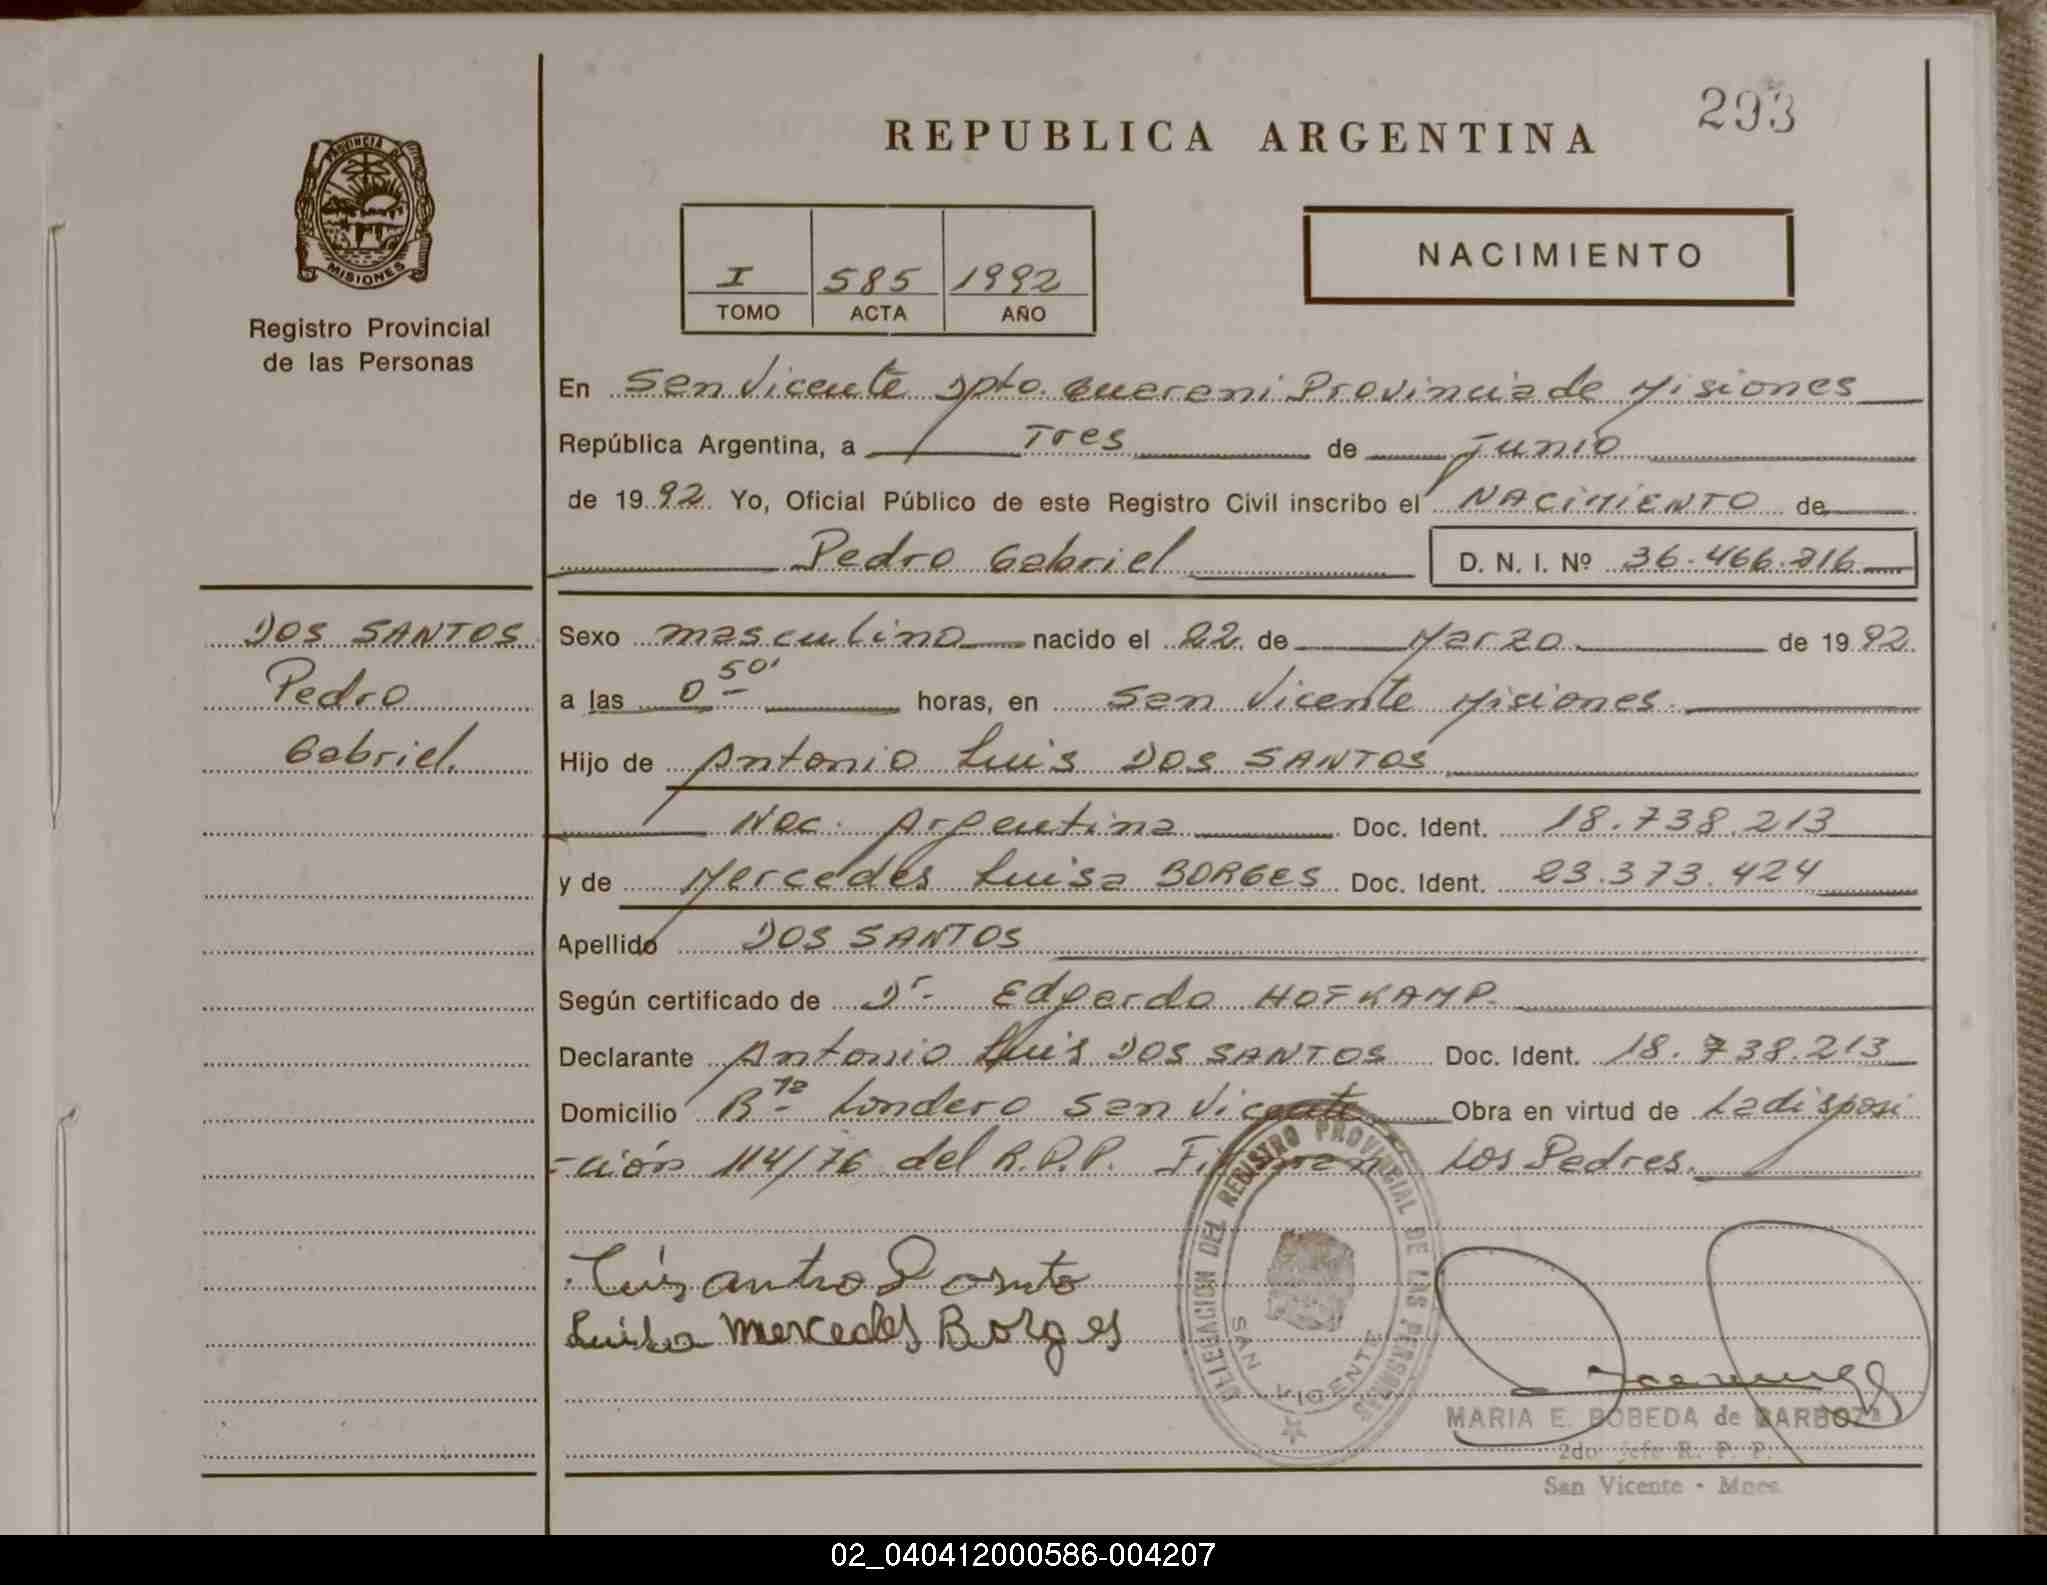 293
REPUBLICA ARGENTINA
PROVINCIA DE
MISIONES
Registro Provincial
de las Personas
I 585 1992
TOMO ACTA AÑO
NACIMIENTO
En San Vicente Dpto. Guarani Provincia de Misiones
República Argentina, a Tres de Junio
de 1992 Yo, Oficial Público de este Registro Civil inscribo el NACIMIENTO de
Pedro Gabriel D. N. I. Nº 36.466.216
DOS SANTOS
Pedro
Gabriel.
Sexo masculino nacido el 22 de Marzo de 1992.
a las 0 50' horas, en San Vicente Misiones.
Hijo de Antonio Luis DOS SANTOS
Nac. Argentina Doc. Ident. 18.738.213
y de Mercedes Luisa BORGES Doc. Ident. 23.373.424
Apellido DOS SANTOS
Según certificado de Dr. Edgardo HOFKAMP.
Declarante Antonio Luis DOS SANTOS Doc. Ident. 18.738.213
Domicilio Bº Londero San Vicente Obra en virtud de La disposi
-ción 114/76 del R.P.P. Firman Los Padres.
Luis
Luisa Mercedes Borges
DELEGACION DEL REGISTRO PROVINCIAL DE LAS PERSONAS
SAN VICENTE
MARIA E. BOBEDA de BARBOZA
2do Jefe R. P. P.
San Vicente - Mnes.
02_040412000586-004207